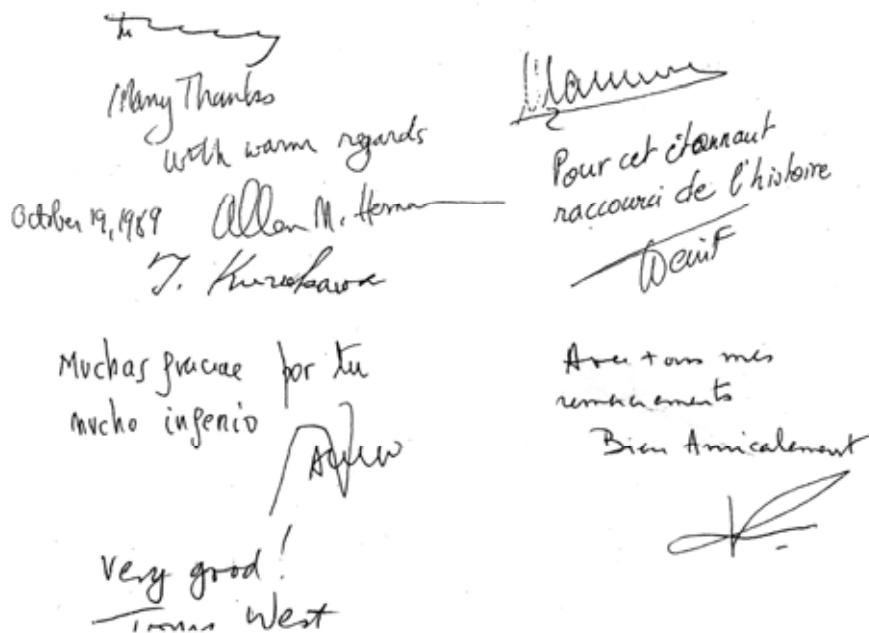 Many Thanks
with warm regards
October 19, 1989 Allan M. Herman
T. Kurokawa
Muchas gracias por tu
mucho ingenio
very good!
West
Pour cet étonnant
raccourci de l'histoire
Avec tous mes
remerciements
Bien Amicalement